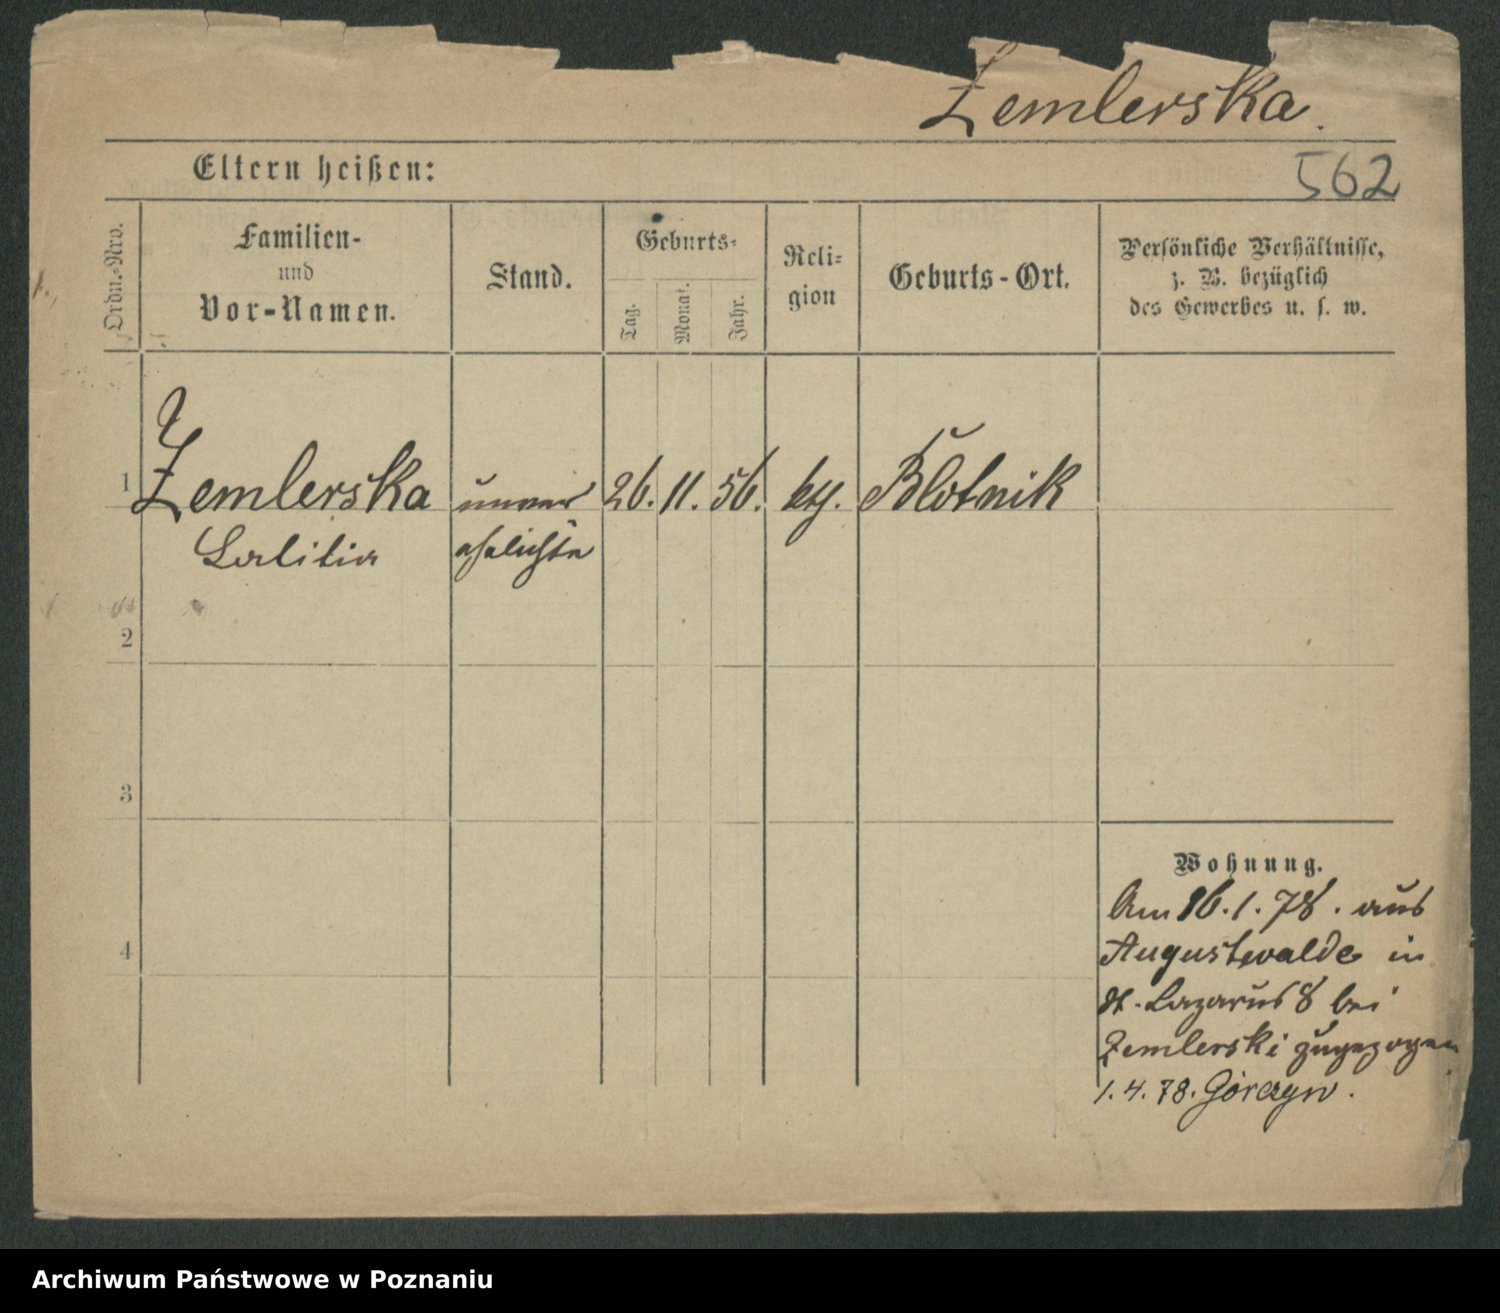 Zemlerska.
Eltern heißen:
562
Ordn.-Nro.
Familien-
und
Vor-Namen.
Stand.
Geburts-
Tag.
Monat.
Jahr.
Reli-
gion
Geburts-Ort.
Persönliche Verhältnisse,
z. B. bezüglich
des Gewerbes u. s. w.
1 Zemlerska unver 26. 11. 56. Blotnik
ehelichte
2
3
4
Wohnung.
Am 16. 1. 78. aus
Augustwalde in
St. Lazarus 8 bei
Zemlerski zugezogen
1. 4. 78. Górczyn.
Archiwum Państwowe w Poznaniu